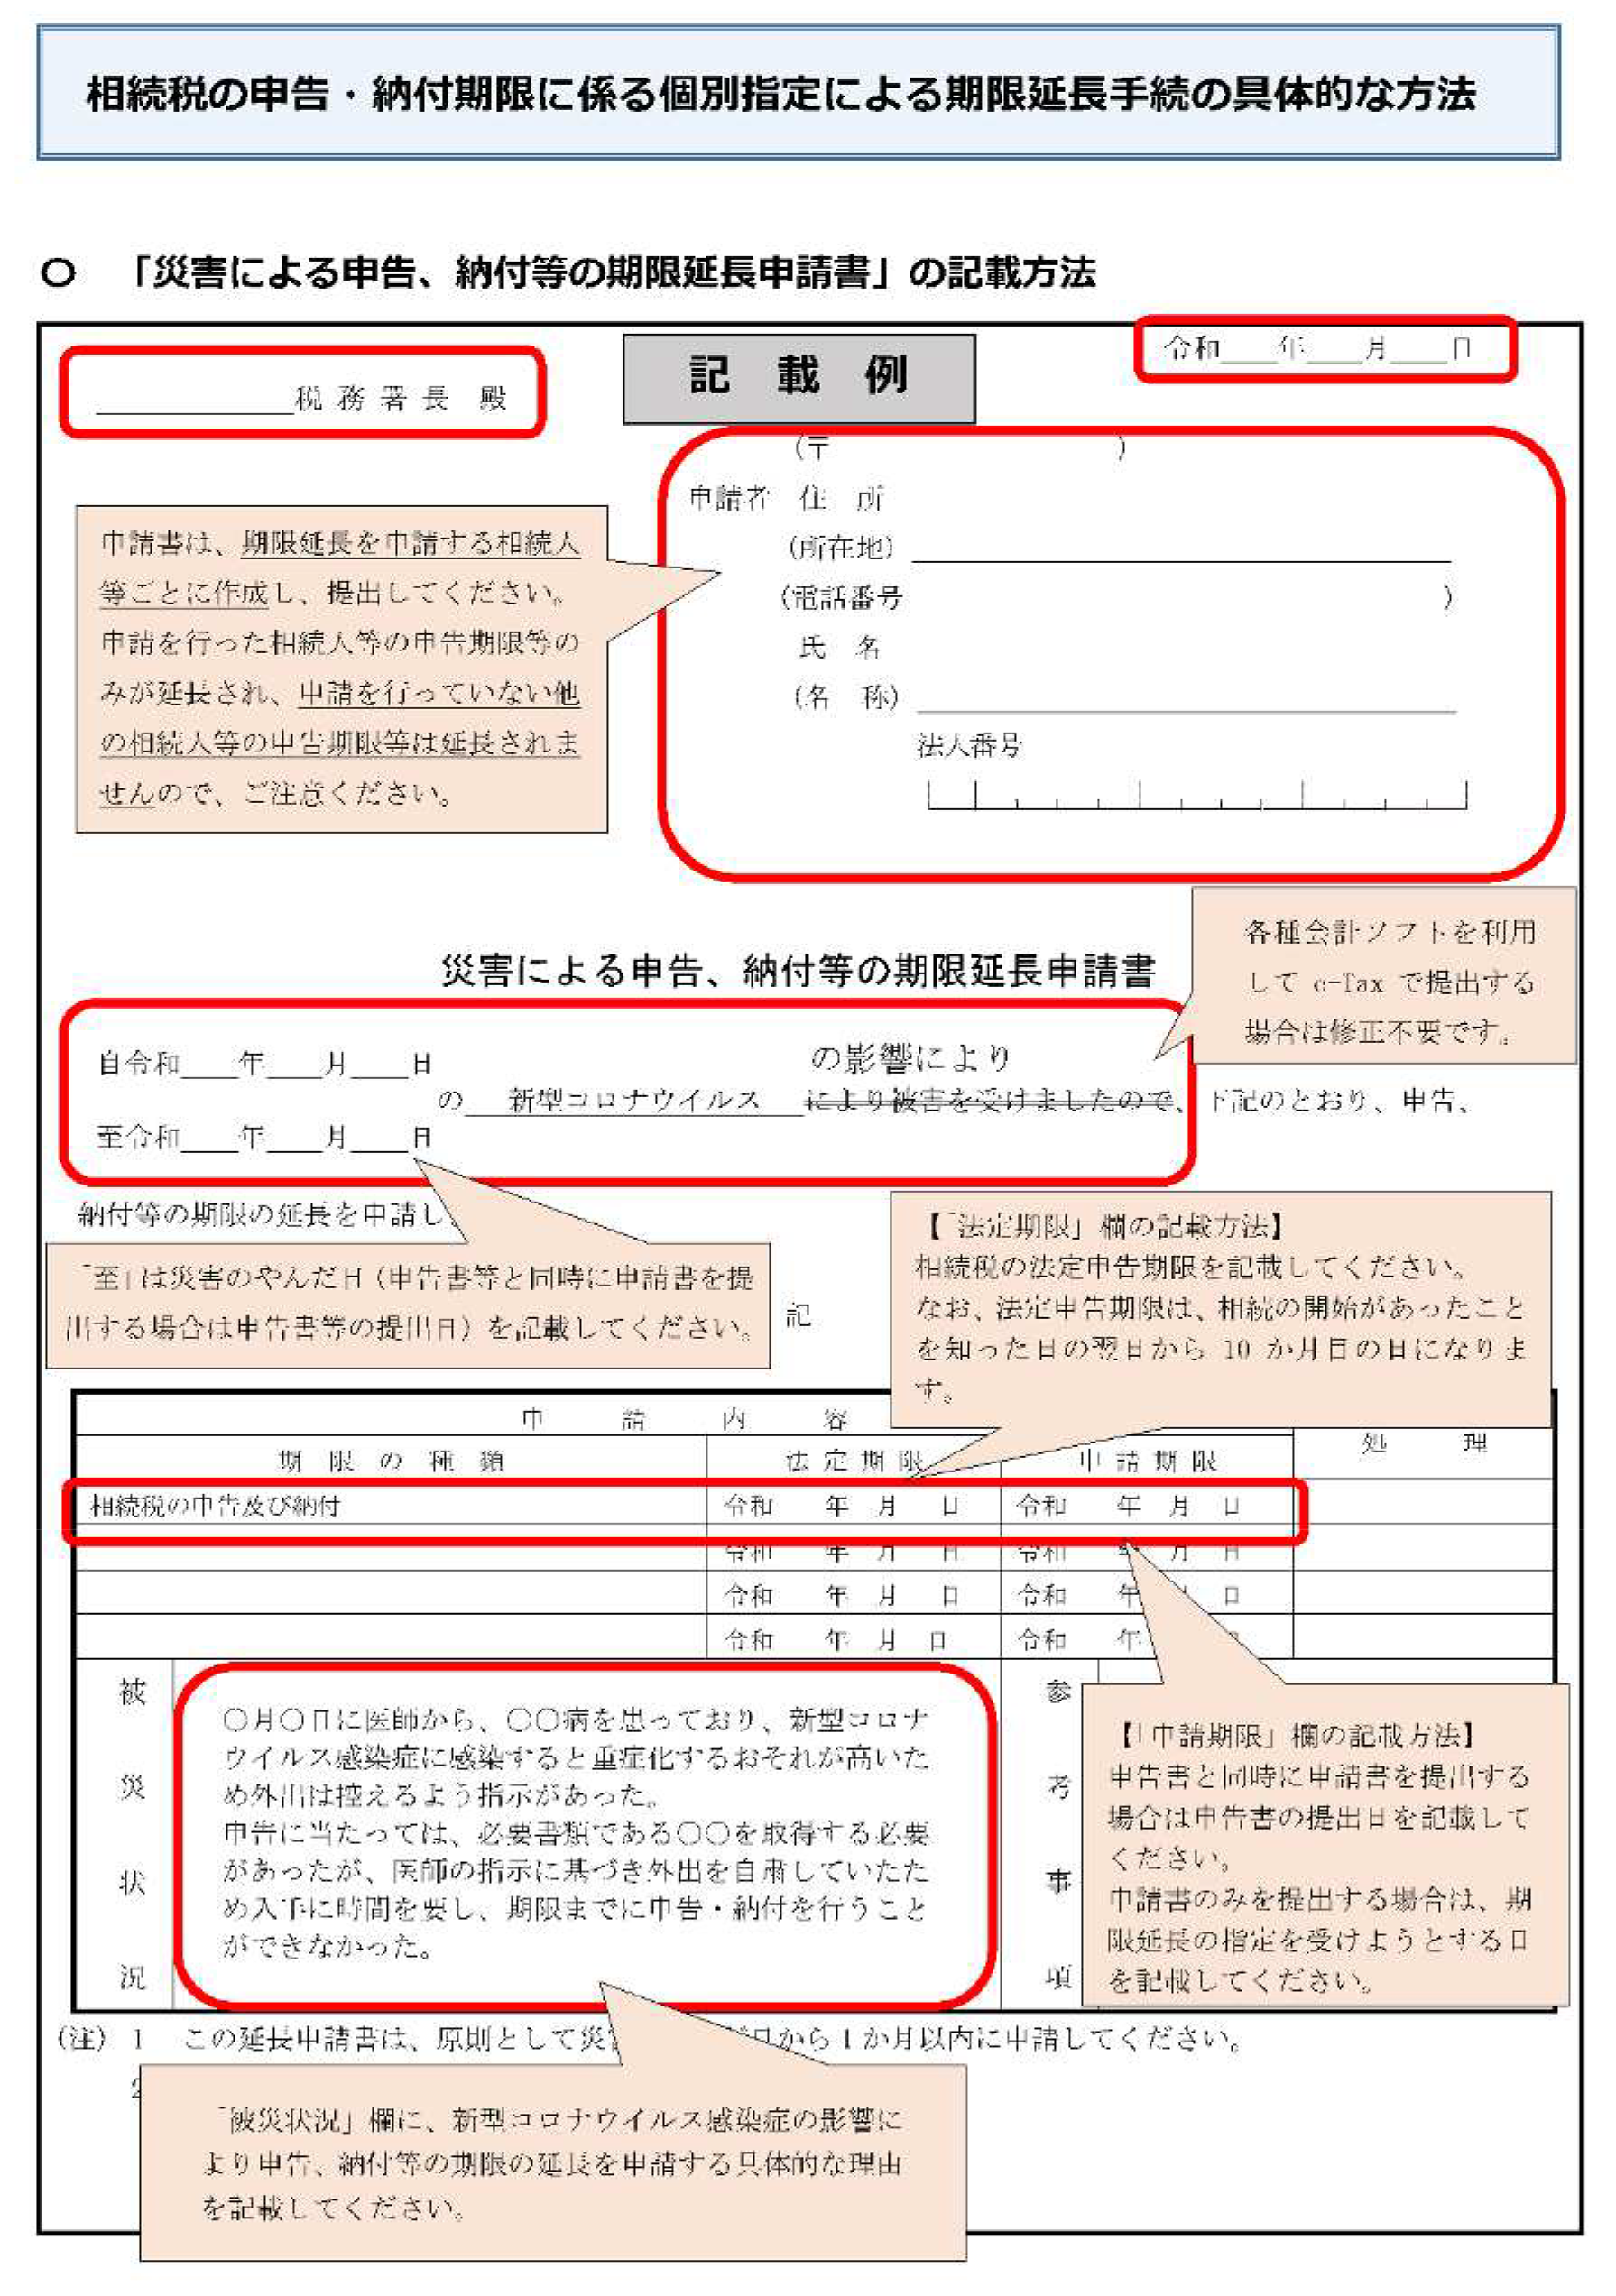 相続税の申告・納付期限に係る個別指定による期限延長手続の具体的な方法
○ 「災害による申告、納付等の期限延長申請書」の記載方法
令和 年 月 日
税務署長 殿
記載例
(〒 )
申請者 住 所
(所在地)
(電話番号 )
氏 名
(名 称)
法人番号
申請書は、期限延長を申請する相続人
等ごとに作成し、提出してください。
申請を行った相続人等の申告期限等の
みが延長され、申請を行っていない他
の相続人等の申告期限等は延長されま
せんので、ご注意ください。
各種会計ソフトを利用
して e-Tax で提出する
場合は修正不要です。
災害による申告、納付等の期限延長申請書
自令和 年 月 日
の影響により
の 新型コロナウイルス により被害を受けましたので、下記のとおり、申告、
至令和 年 月 日
納付等の期限の延長を申請し
「至」は災害のやんだ日（申告書等と同時に申請書を提
出する場合は申告書等の提出日）を記載してください。
記
【「法定期限」欄の記載方法】
相続税の法定申告期限を記載してください。
なお、法定申告期限は、相続の開始があったこと
を知った日の翌日から 10 か月目の日になりま
す。
申 請 内 容
処 理
期 限 の 種 類 法 定 期 限 申 請 期 限
相続税の申告及び納付 令和 年 月 日 令和 年 月 日
令和 年 月 日 令和 年 月 日
令和 年 月 日 令和 年 日
令和 年 月 日 令和 年
被災状況
○月○日に医師から、○○病を患っており、新型コロナ
ウイルス感染症に感染すると重症化するおそれが高いた
め外出は控えるよう指示があった。
申告に当たっては、必要書類である○○を取得する必要
があったが、医師の指示に基づき外出を自粛していたた
め入手に時間を要し、期限までに申告・納付を行うこと
ができなかった。
参考事項
【「申請期限」欄の記載方法】
申告書と同時に申請書を提出する
場合は申告書の提出日を記載して
ください。
申請書のみを提出する場合は、期
限延長の指定を受けようとする日
を記載してください。
(注) 1 この延長申請書は、原則として災 日から1か月以内に申請してください。
2
「被災状況」欄に、新型コロナウイルス感染症の影響に
より申告、納付等の期限の延長を申請する具体的な理由
を記載してください。